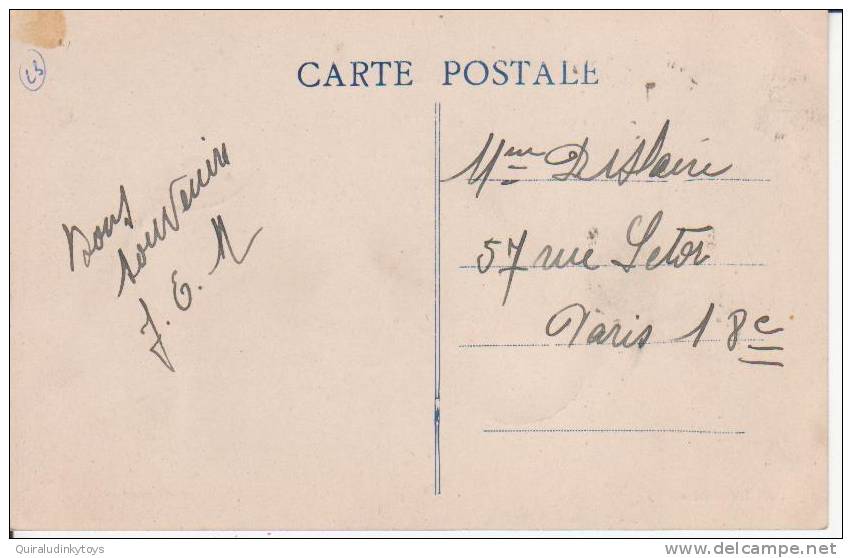 CARTE POSTALE
23
Bons
souvenirs
J. E. M
Mme
57 rue Letort
Paris 18e
Quiraludinkytoys
www.delcampe.net